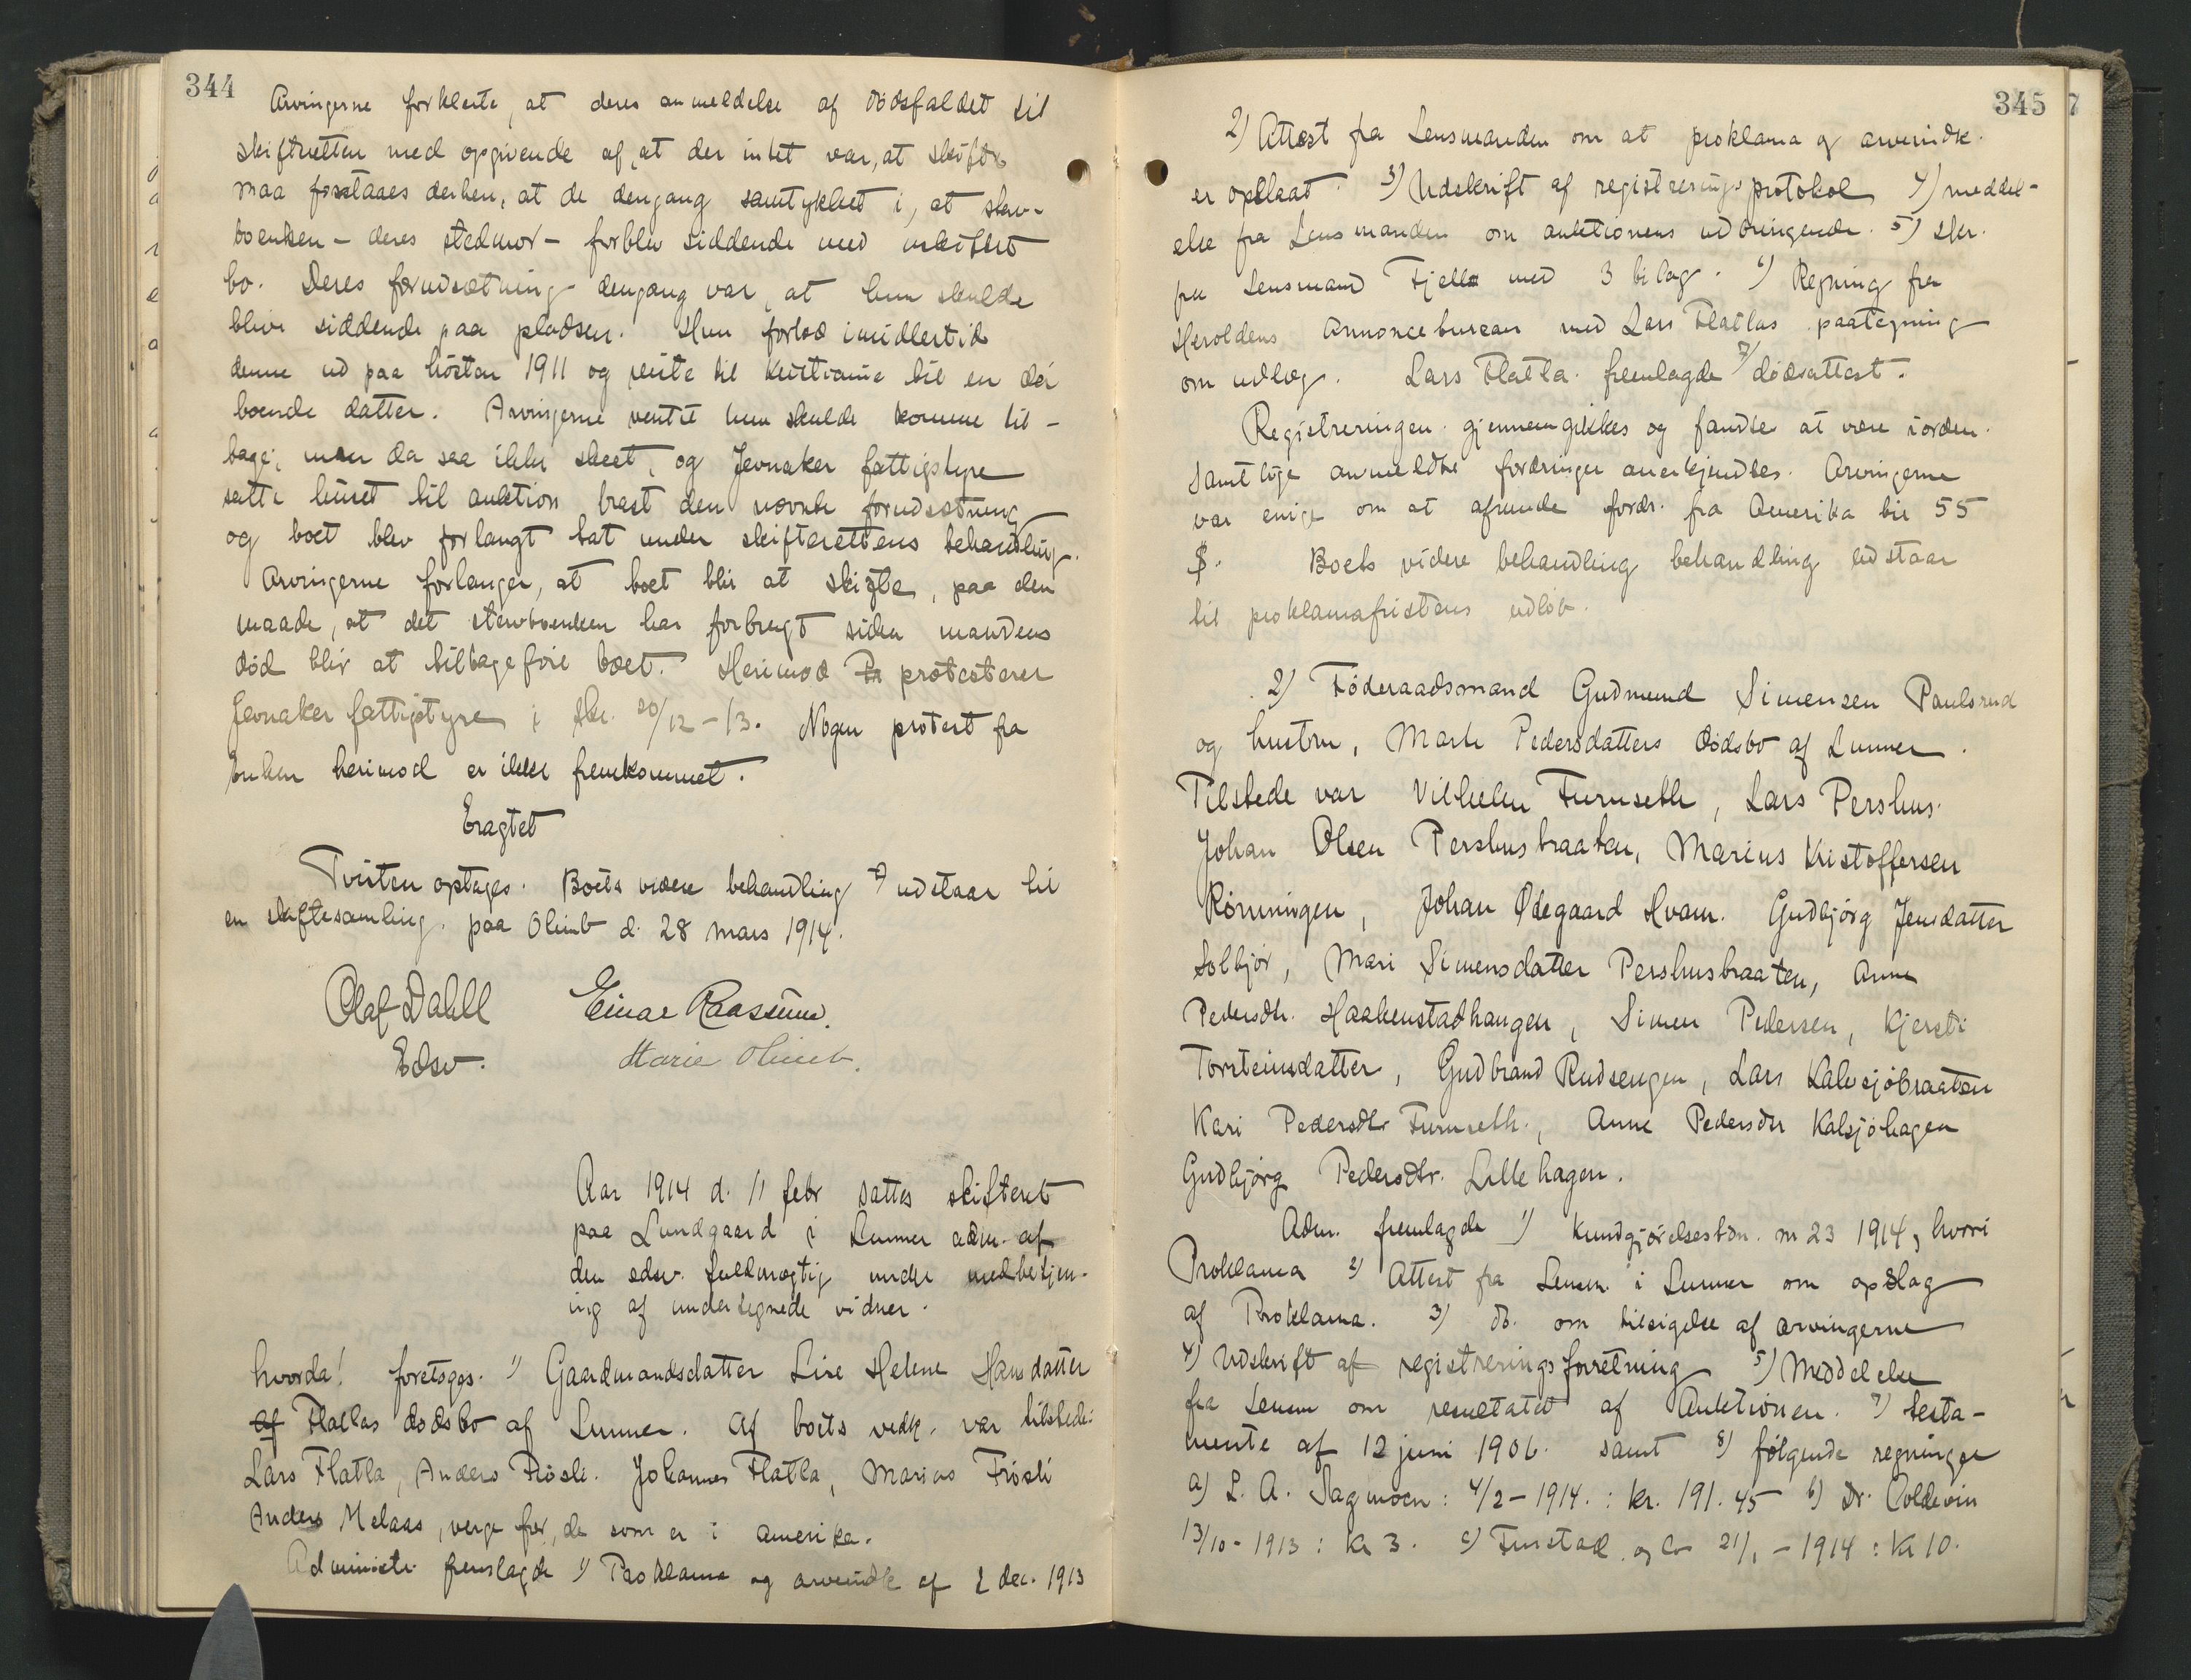 344
Arvingerne forklarte, at deres anmeldelse af dödsfaldet til
skifteretten med opgivende af, at der intet var, at skifte
maa forstaaes derhen, at de dengang samtykket i, at sterv-
boenken - deres stedmor - forblev siddende med uskiftet
bo. Deres forudsætning dengang var, at hun skulde
blive siddende paa pladsen. Hun forlod imidlertid
denne ud paa hösten 1911 og reiste til Kristiania til en der
boende datter. Arvingerne ventet hun skulde komme til-
bage; men da saa ikke skeet, og Jevnaker fattigstyre
satte huset til auktion brast den nævnte forudsætning
og boet blev forlangt tat under skifterettens behandling.
Arvingerne forlanger, at boet blir at skifte, paa den
maade, at det stervboenken har forbrugt siden mandens
död blir at tilbageföie boet. Herimod protesterer
Jevnaker fattigstyre i skr. 20/12-13. Nogen protest fra
enken herimod er ikke fremkommet.
Eragtet
Tvisten optages. Boets videre behandling udstaar til
en skiftesamling paa Olimb d. 28 mars 1914.
Olaf Dahll Einar Raassum.
Edsv. Marie Olimb.
Aar 1914 d. 11 febr sattes skifteret
paa Lundgaard i Lunner adm. af
den edsv. fuldmægtig under medbetjen-
ing af undertegnede vidner.
hvorda! foretoges. 1) Gaardmandsdatter Lise Helene Hansdatter
af Flatlas dødsbo af Lunner. Af boets vedk. var tilstede:
Lars Flatla, Anders Frösli. Johannes Flatla, Marius Frösli
Anders Melaas, verge for, de som er i Amerika.
Administr. fremlagde 1) Proklama og arveindk af 2 dec. 1913
345
2) Attest fra Lensmanden om at proklama og arveindk.
er opslaat. 3) Udskrift af registreringsprotokol 4) meddel-
else fra Lensmanden om auktionens udbringende. 5) skr.
fra Lensmand Fjella med 3 bilag. 6) Regning fra
Heroldens Annoncebureau med Lars Flatlas paategning
om udlæg. Lars Flatla fremlagde 7) dödsattest.
Registreringen gjennemgikkes og fandtes at være iorden.
Samtlige anmeldte fordringer anerkjendtes. Arvingerne
var enige om at afrunde fordr. fra Amerika til 55
$. Boets videre behandling behandling udstaar
til proklamafristens udløb.
2) Föderaadsmand Gudmund Simensen Paulsrud
og hustru, Marte Pedersdatters dödsbo af Lunner.
Tilstede var Vilhelm Furuseth, Lars Pershus.
Johan Olsen Pershusbraaten, Marius Kristoffersen
Rönningen, Johan Ødegaard Hvam. Gudbjørg Jensdatter
Solbjör, Mari Simensdatter Pershusbraaten, Anne
Pedersdtr. Haakenstadhaugen, Simen Pedersen, Kjersti
Torsteinsdatter, Gudbrand Rudsengen, Lars Kalvsjöbraaten
Kari Pedersdtr Furuseth., Anne Pedersdtr Kalsjöhagen
Gudbjørg Pedersdtr. Lillehagen.
Adm. fremlagde 1) Kundgjørelsestdn. nr 23 1914, hvori
Proklama 2) Attest fra Lensm. i Lunner om opslag
af Proklama. 3) do. om tilsigelse af arvingerne
4) Udskrift af registreringsforretning 5) Meddelelse
fra Lensm om resultatet af Auktionen. 7) testa-
mente af 12 juni 1906. samt 8) følgende regninger
a) L. A. Sagmoen: 4/2-1914.: kr. 191.45 b) Dr. Coldevin
13/10-1913: kr 3. c) Funstad og Co 21/1-1914: Kr 10.